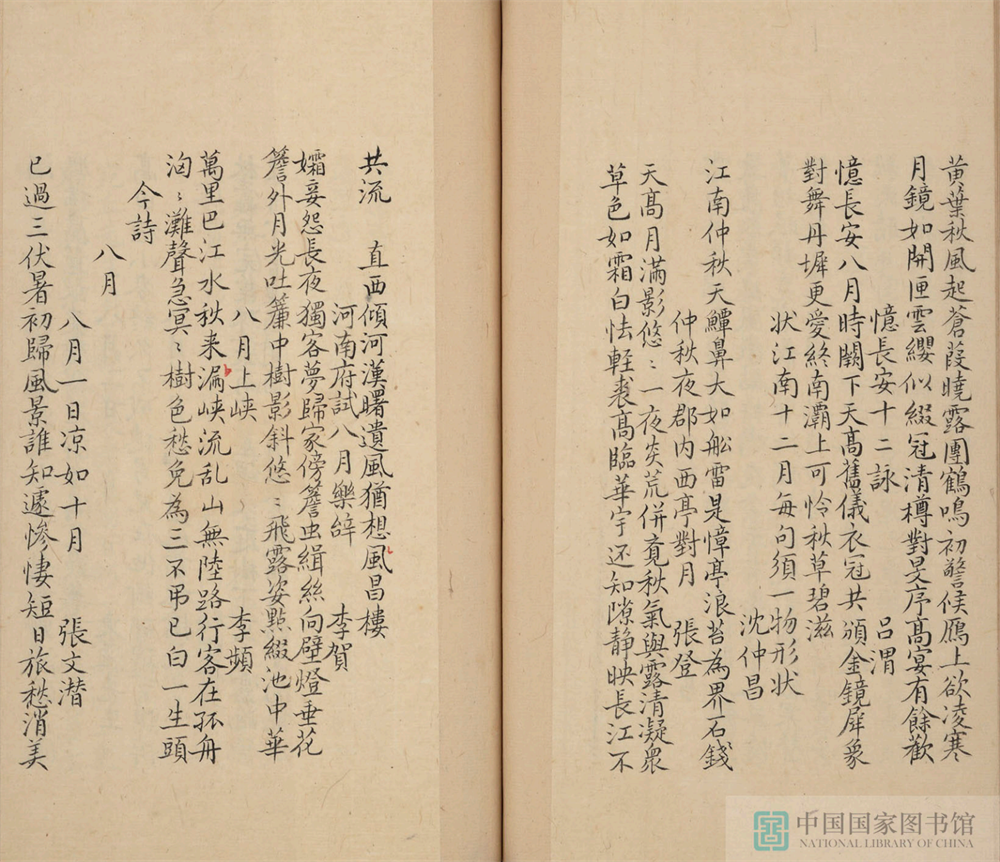 黄葉秋風起蒼葭曉露團鶴鳴初警候鴈上欲凌寒
月鏡如開匣雲纓似綴冠清樽對旻序高宴有餘歡
憶長安十二詠　吕渭
憶長安八月時闕下天高舊儀衣冠共頒金鏡犀象
對舞丹墀更愛終南灞上可怜秋草碧滋
状江南十二月每句須一物形状
沈仲昌
江南仲秋天鱏鼻大如舩雷是樟亭浪苔為界石錢
仲秋夜郡内西亭對月　張登
天高月滿影悠〻一夜炎荒併竟秋氣與露清凝衆
草色如霜白怯軽裘高臨華宇还知隙静映長江不
共流　直西傾河漢曙遺風猶想風昌樓
河南府試八月樂辝　李賀
孀妾怨長夜獨客夢歸家傍簷虫緝絲向壁燈垂花
簷外月光吐簾中樹影斜悠〻飛露姿點綴池中華
八月上峽　李頻
萬里巴江水秋来漏峡流乱山無陸路行客在孤舟
洶〻灘聲急冥〻樹色愁免為三不吊已白一生頭
今詩
八月
八月一日凉如十月　張文潜
已過三伏暑初歸風景誰知遽惨悽短日旅愁消美
中国国家图书馆
NATIONAL LIBRARY OF CHINA